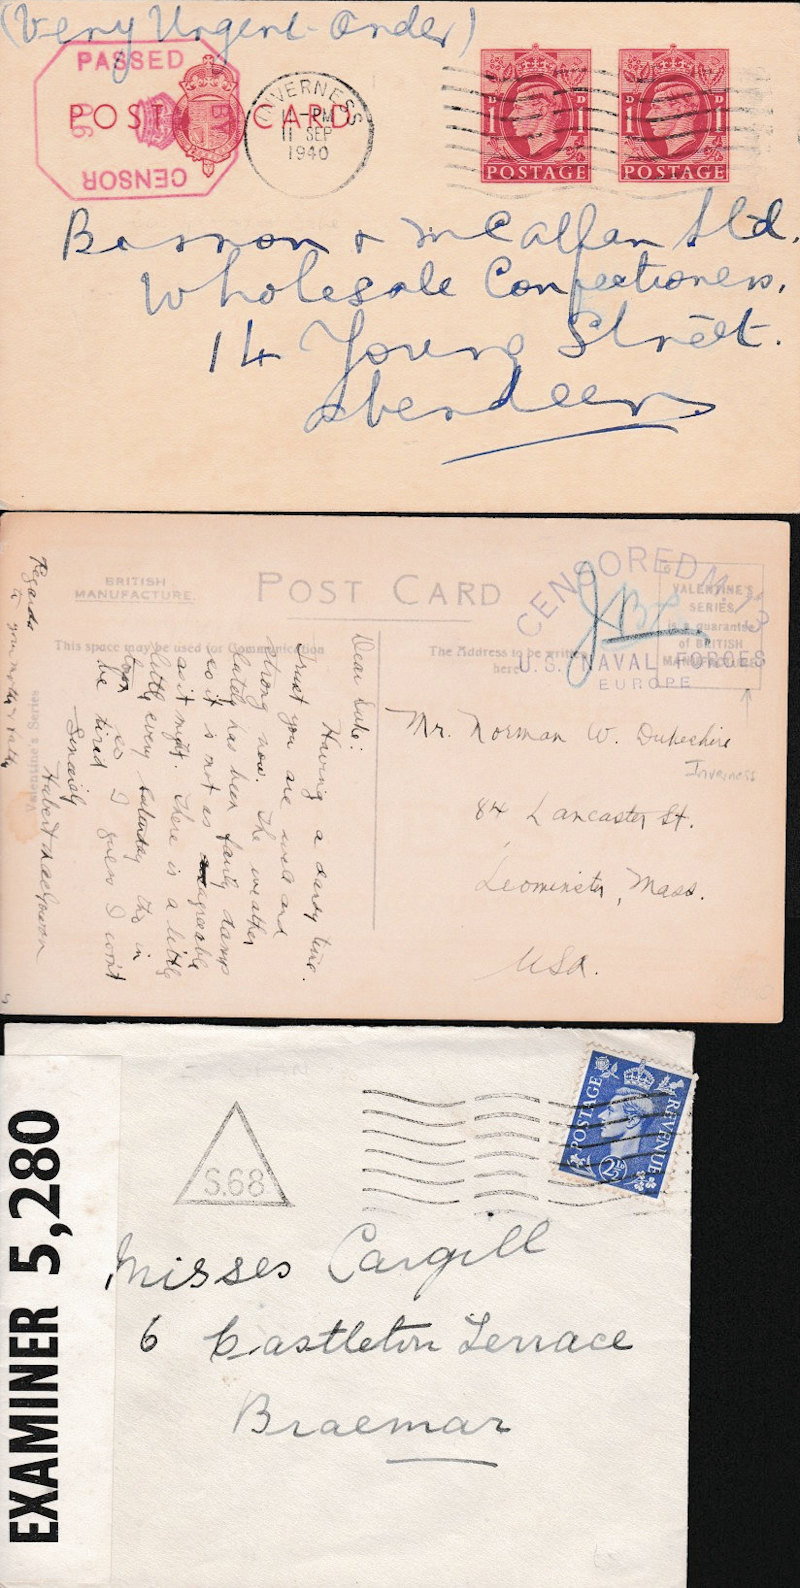 (Very Urgent Order)
PASSED
BY
CENSOR
90
POST CARD
INVERNESS
1-PM
11 SEP
1940
1D 1D
POSTAGE
1D 1D
POSTAGE
Wholesale Confectioners,
14 Young Street.
Aberdeen.
BRITISH
MANUFACTURE
POST CARD
This space may be used for Communication
The Address to be written
here
CENSORED
U.S. NAVAL FORCES
EUROPE
VALENTINE'S
SERIES
is a guarantee
of BRITISH
MANUFACTURE
Valentine's Series
Dear Duke:
Having a dandy time.
Trust you are well and
strong now. The weather
lately has been fairly damp
so it is not as agreeable
as it might. There is a little
little every Saturday tho in
town so I guess I won't
be tired
Sincerely
Regards
to your mother & father
Mr. Norman W. Dukeshire
Inverness
84 Lancaster St.
Leominster, Mass.
USA.
EXAMINER 5,280
S.68
POSTAGE REVENUE
2½D
Misses Cargill
6 Castleton Terrace
Braemar